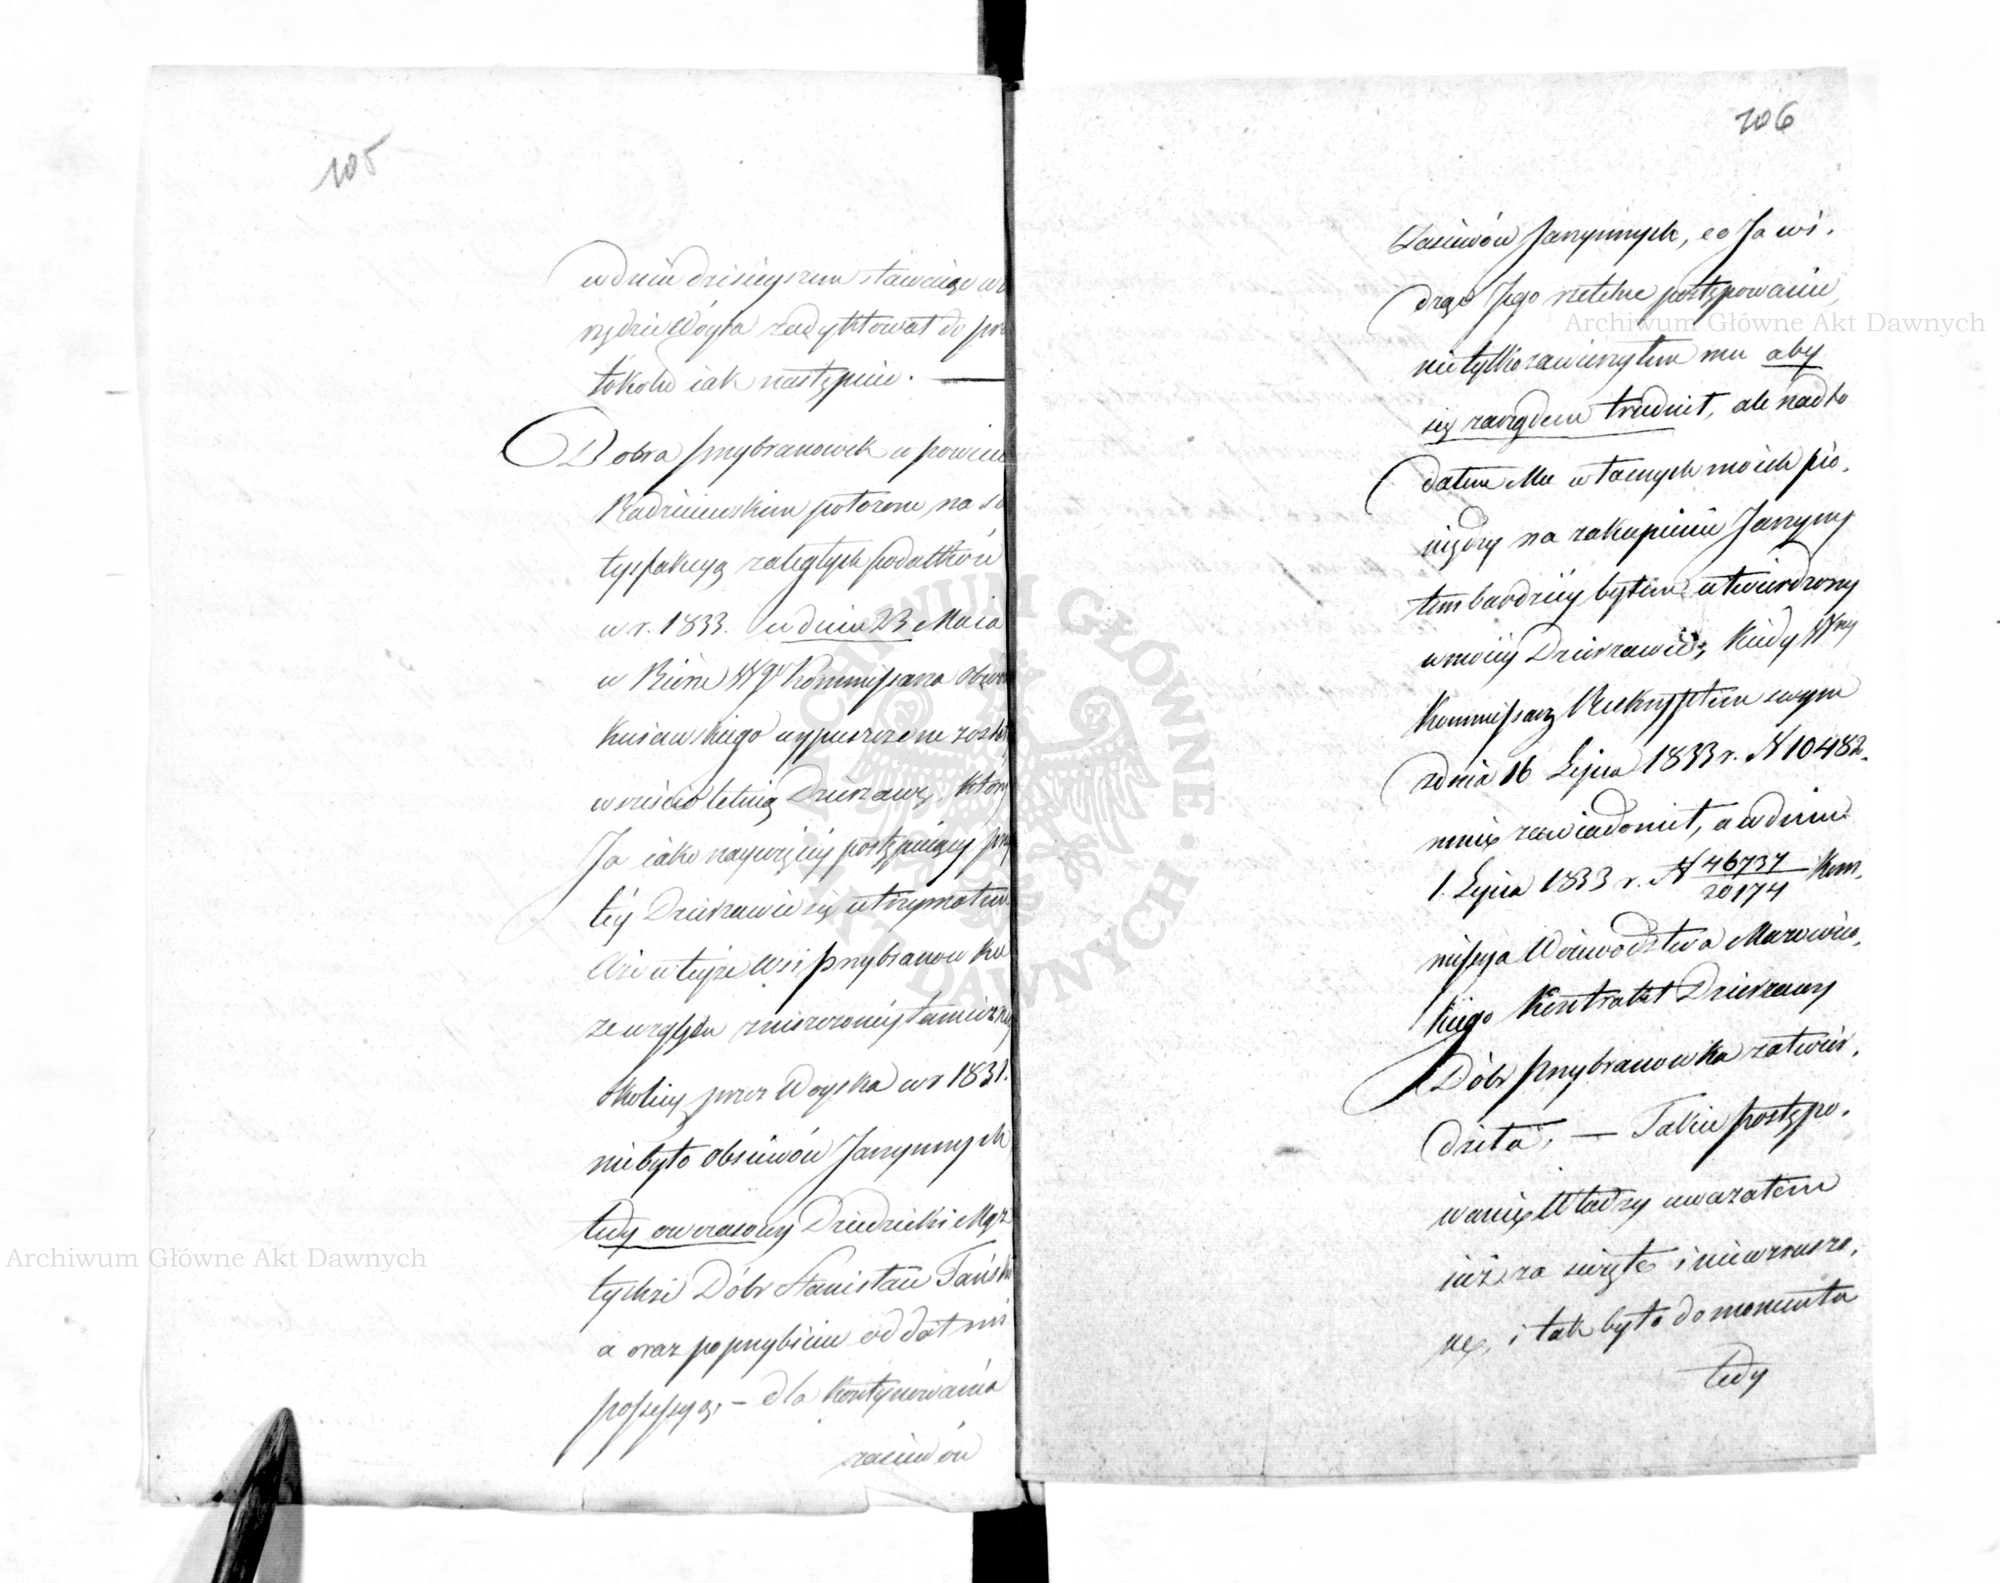 105
w dniu dzisieyszem stawaiąc w U
rzędzie Wóyta zadyktował do pro
tokołu iak następuie. —
Dobra Przybranowek w powiecie
Radzieiewskim położone, na sa
tysfakcyą zaległych podatków
w r. 1833. w dniu 23 Maia
w Biórze Wgo Kommissarza Obwodu
Kujawskiego wypuszczone zosta
w sześcioletnią Dzierzawę, który
Ja iako naywięcéy postępuiący przy
téy Dzierzawie się utrzymałem
Że w teyże Wsi Przybranowku
ze względu zniszczonéy tameczney
okolicy przez Woyska w r 1831.
niebyło obsiewów Jarzynnych
tedy owczasowy Dziedzic i
tychże Dóbr Stanisław Tański
a oraz po przybiciu oddał mi
possessyą, — dla kontynuowania
zasiewów
106
Zasiewów Jarzynnych, co Ja wi-
dząc Jego rzetelne postępowanie,
nietylko zawierzyłem mu aby
się zarządem trudnił, ale nadto
dałem Mu własnych moich pie-
niędzy na zakupienie Jarzyny
tembardziéy byłem utwierdzony
w moiéy Dzierzawie, kiedy Wny
Kommissarz Reskryptem swym
z dnia 16 Lipca 1833 r. N 10482.
mnie zawiadomił, a w dniu
1. Lipca 1833 r. N 46737/20174 Kom-
missya Woiewodztwa Mazowiec-
kiego Kontrakt Dzierzawy
Dóbr Przybranowka zatwier-
dziła, — Takie postępo-
wanie Władzy uważałem
iuż za święte i niewzruszo-
ne, i tak było do momentu
tedy
Archiwum Główne Akt Dawnych
Archiwum Główne Akt Dawnych
ARCHIWUM GŁÓWNE · AKT DAWNYCH ·